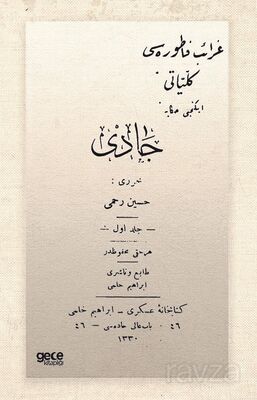 غرائب فاطوره‌سی
كلّیاتی
ایكنجی حكایه
جادی
محرری :
حسین رحمی
— جلد اول —
هر حقی محفوظدر
طابع و ناشری
ابراهیم حلمی
كتابخانهٔ عسكری – ابراهیم حلمی
٤٦ — باب عالی جاده‌سی — ٤٦
١٣٣٠
gece
kitaplığı
razvuz.com